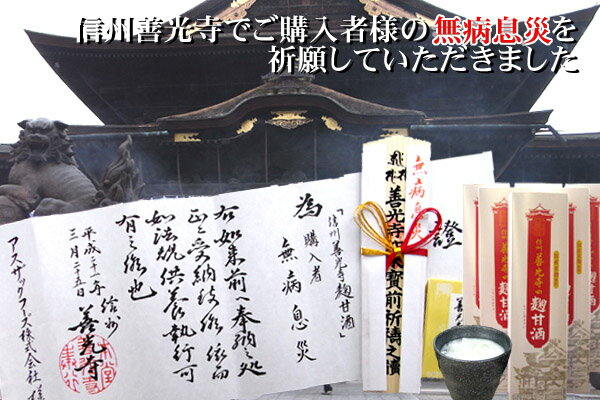 信州善光寺でご購入者様の無病息災を
祈願していただきました
證
「信州善光寺麹甘酒」
購入者
為 無病息災
右如来前へ奉納之処
正ニ受納候依而
如法祝供養執行可
有之候也
平成二十一年
三月二十五日
信州
善光寺
アスザックフーズ株式会社 様
無病息災
善光寺御本尊寶前祈祷之牘
信州
善光寺
麹甘酒